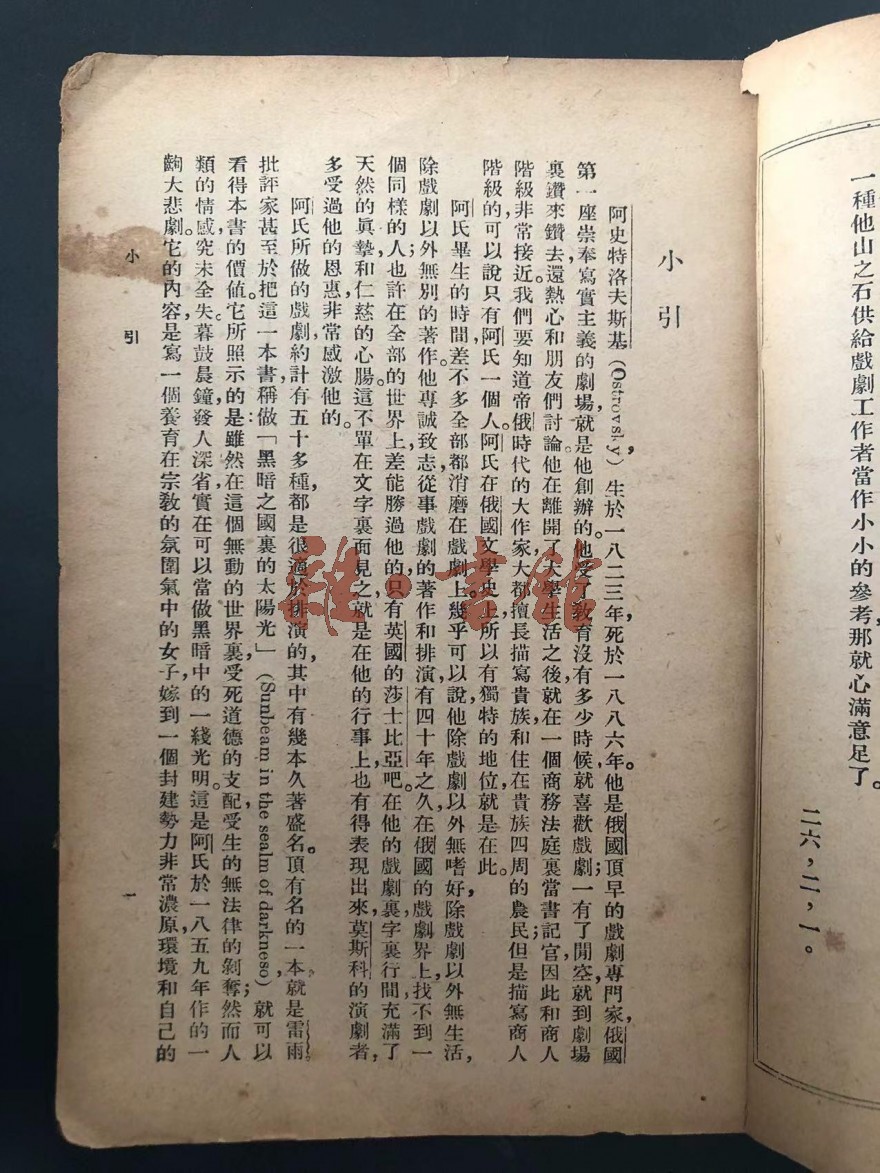 一種他山之石供給戲劇工作者當作小小的參考，那就心滿意足了。
二六，二，一。
小引
阿史特洛夫斯基（Ostrovsky）生於一八二三年，死於一八八六年。他是俄國頂早的戲劇專門家，俄國
第一座崇奉寫實主義的劇場就是他創辦的。他受了教育沒有多少時候就喜歡戲劇；一有了閒空就到劇場
裏鑽來鑽去，還熱心和朋友們討論。他在離開了大學生活之後，就在一個商務法庭裏當書記官，因此和商人
階級非常接近。我們要知道帝俄時代的大作家大都擅長描寫貴族，和住在貴族四周的農民，但是描寫商人
階級的，可以說只有阿氏一個人。阿氏在俄國文學史上所以有獨特的地位，就是在此。
阿氏畢生的時間，差不多全部都消磨在戲劇上。幾乎可以說他除戲劇以外無嗜好，除戲劇以外無生活，
除戲劇以外無別的著作。他專誠致志從事戲劇的著作和排演，有四十年之久，在俄國的戲劇界上，找不到一
個同樣的人；也許在全部的世界上，差能勝過他的，只有英國的莎士比亞吧。在他的戲劇裏，字裏行間充滿了
天然的眞摯和仁慈的心腸。這不單在文字裏面見之，就是在他的行事上，也有得表現出來，莫斯科的演劇者，
多受過他的恩惠，非常感激他的。
阿氏所做的戲劇，約計有五十多種，都是很適於排演的，其中有幾本久著盛名。頂有名的一本，就是雷雨
批評家甚至於把這一本書稱做「黑暗之國裏的太陽光」（Sunbeam in the sealm of darkneso）就可以
看得本書的價值。它所照示的是：雖然在這個無動的世界裏，受死道德的支配，受生的無法律的剝奪；然而人
類的情感究未全失。暮鼓晨鐘，發人深省，實在可以當做黑暗中的一綫光明。這是阿氏於一八五九年作的一
齣大悲劇。它的內容，是寫一個養育在宗敎的氛圍氣中的女子，嫁到一個封建勢力非常濃原環境和自己的
小引
一
雜·書館